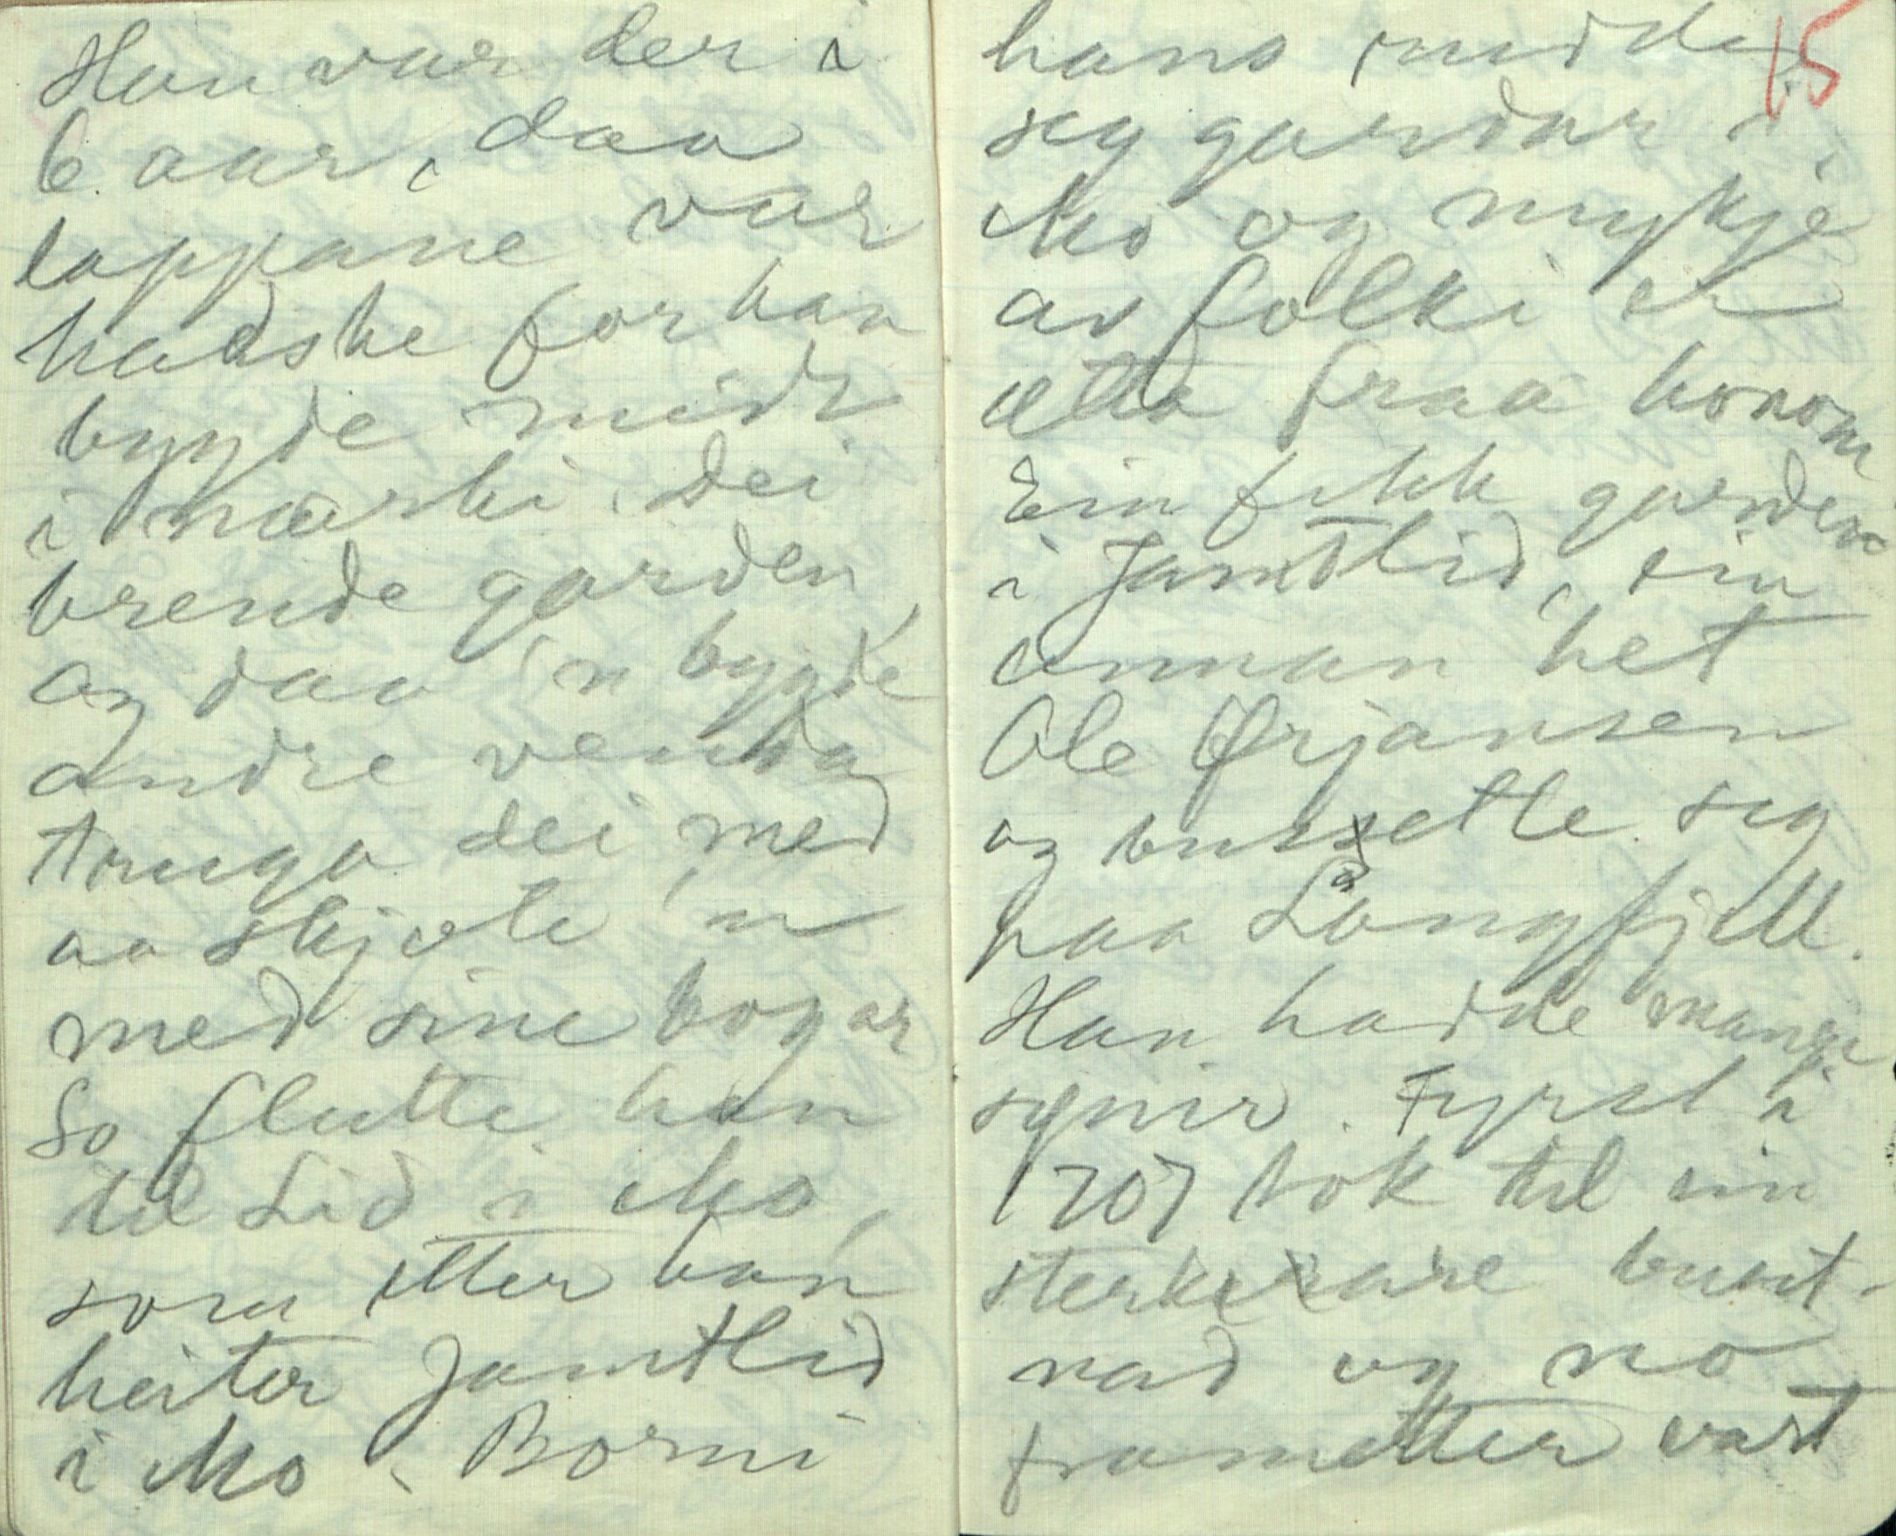 Han var der i
6 aar, daa
lappane var
hadske for han
bygde midt
i marki. Dei
brende garden,
og daa 'n bygde
andre venda
truga dei med
aa skjote 'n
med sine bogar
So flutte han
til Lid i Mo,
som etter han
heiter Jamtlid
i Mo. Borni
15
hans rudde
seg gardar i
Mo og mykje
av folki er
ætta fraa honom
Ein fekk garden
i Jamtlid, ein
annan het
Ole Ørjansen
og busette seg
paa Langfjell.
Han hadde mange
synir. Fyrst i
1707 tok til ein
sterkare buset-
nad og no
frametter vart